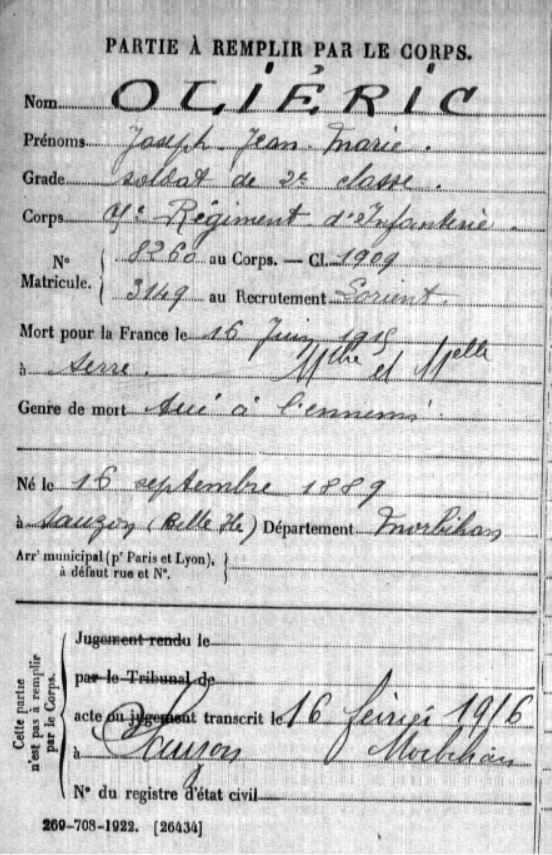 PARTIE À REMPLIR PAR LE CORPS.
Nom OLIÉRIC
Prénoms Joseph Jean Marie.
Grade soldat de 2e classe.
Corps Régiment d'Infanterie.
N° Matricule. 8260 au Corps. — Cl. 1909
3149 au Recrutement Lorient.
Mort pour la France le 16 Juin 1915
à Serre. Mthe et Melle
Genre de mort tué à l'ennemi
Né le 16 septembre 1889
à Sauzon (Belle Ile) Département Morbihan
Arrt municipal (pr Paris et Lyon),
à défaut rue et N°.
Cette partie n'est pas à remplir par le Corps.
Jugement rendu le
par le Tribunal de
acte ou jugement transcrit le 16 février 1916
à Sauzon Morbihan
N° du registre d'état civil
269-708-1922. [26434]